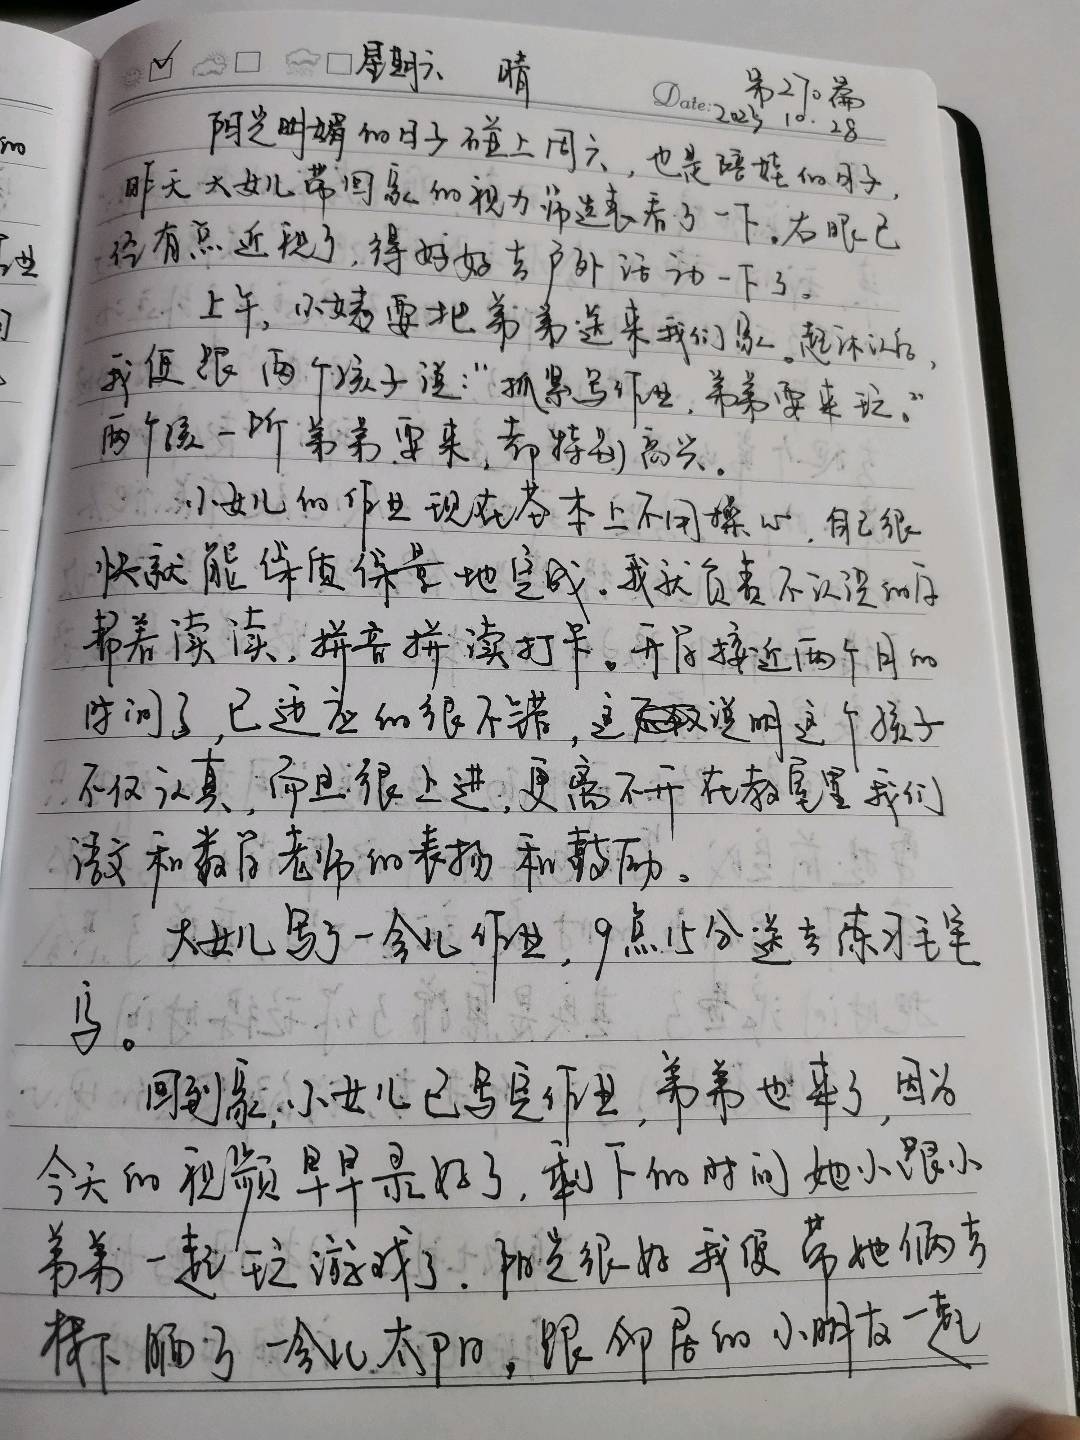 星期六 晴 第270篇
Date: 2023 10. 28
阳光明媚的日子碰上周六,也是陪娃的日子,
昨天大女儿带回家的视力筛选表看了一下。右眼已
经有点近视了,得好好去户外活动一下了。
上午,小姨要把弟弟送来我们家。起床以后,
我便跟两个孩子说:“抓紧写作业,弟弟要来玩。”
两个孩一听弟弟要来,都特别高兴。
小女儿的作业现在基本上不用操心,自己很
快就能保质保量地完成。我就负责不认识的字
帮着读读,拼音拼读打卡。开学接近两个月的
时间了,已适应的很不错,这说明这个孩子
不仅认真,而且很上进,更离不开在教室里我们
语文和数学老师的表扬和鼓励。
大女儿写了一会儿作业,9点15分送去练习毛笔
写。
回到家,小女儿已写完作业,弟弟也来了,因为
今天的视频早早录好了,剩下的时间她小跟小
弟弟一起玩游戏了。阳光很好我便带她俩去
楼下晒了一会儿太阳。跟邻居的小朋友一起